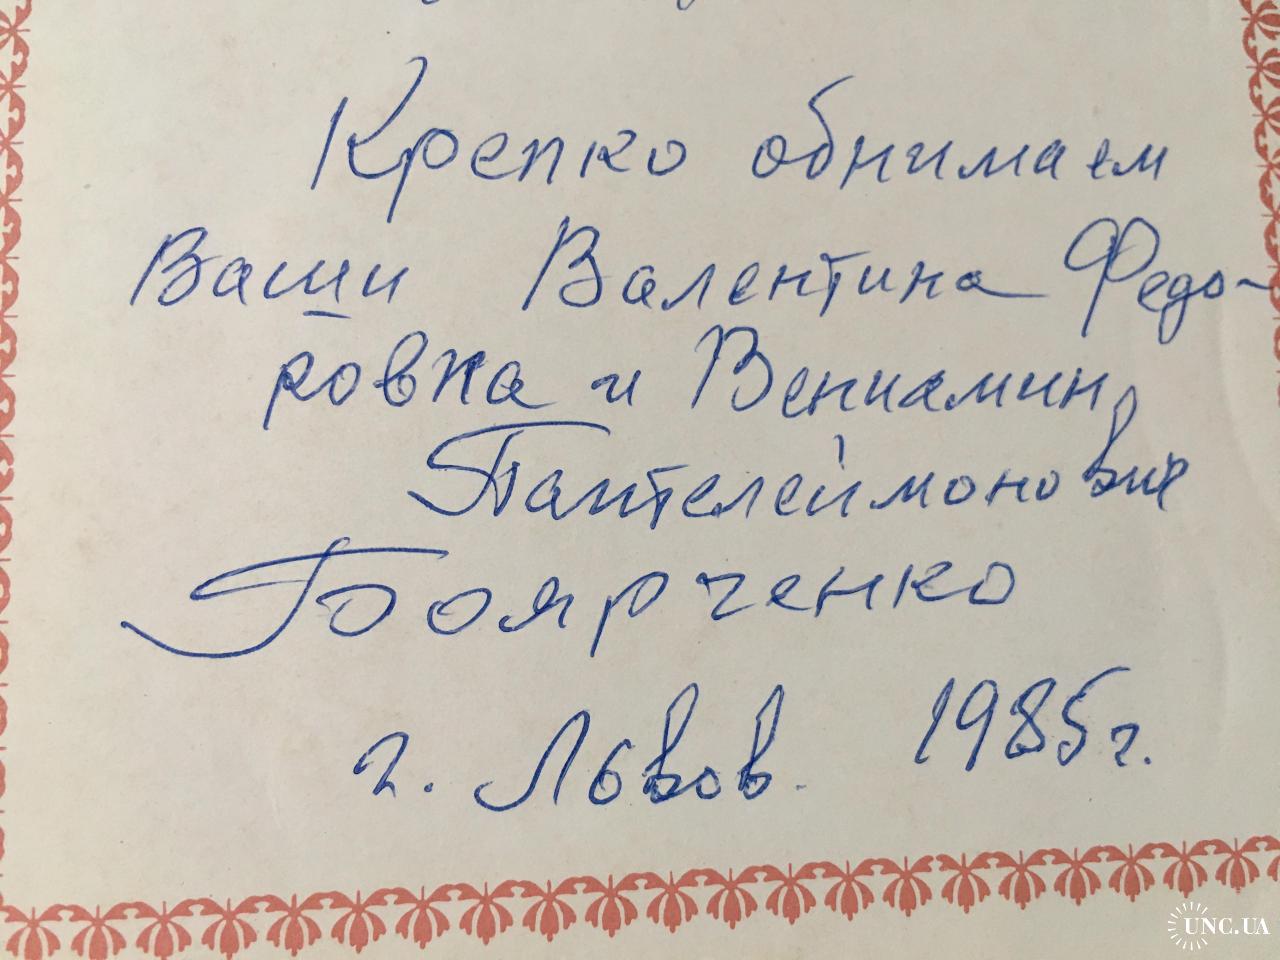 Крепко обнимаем
Ваши Валентина Федо-
ровна и Вениамин
Пантелеймонович
Боярченко
г. Львов. 1985г.
UNC.UA